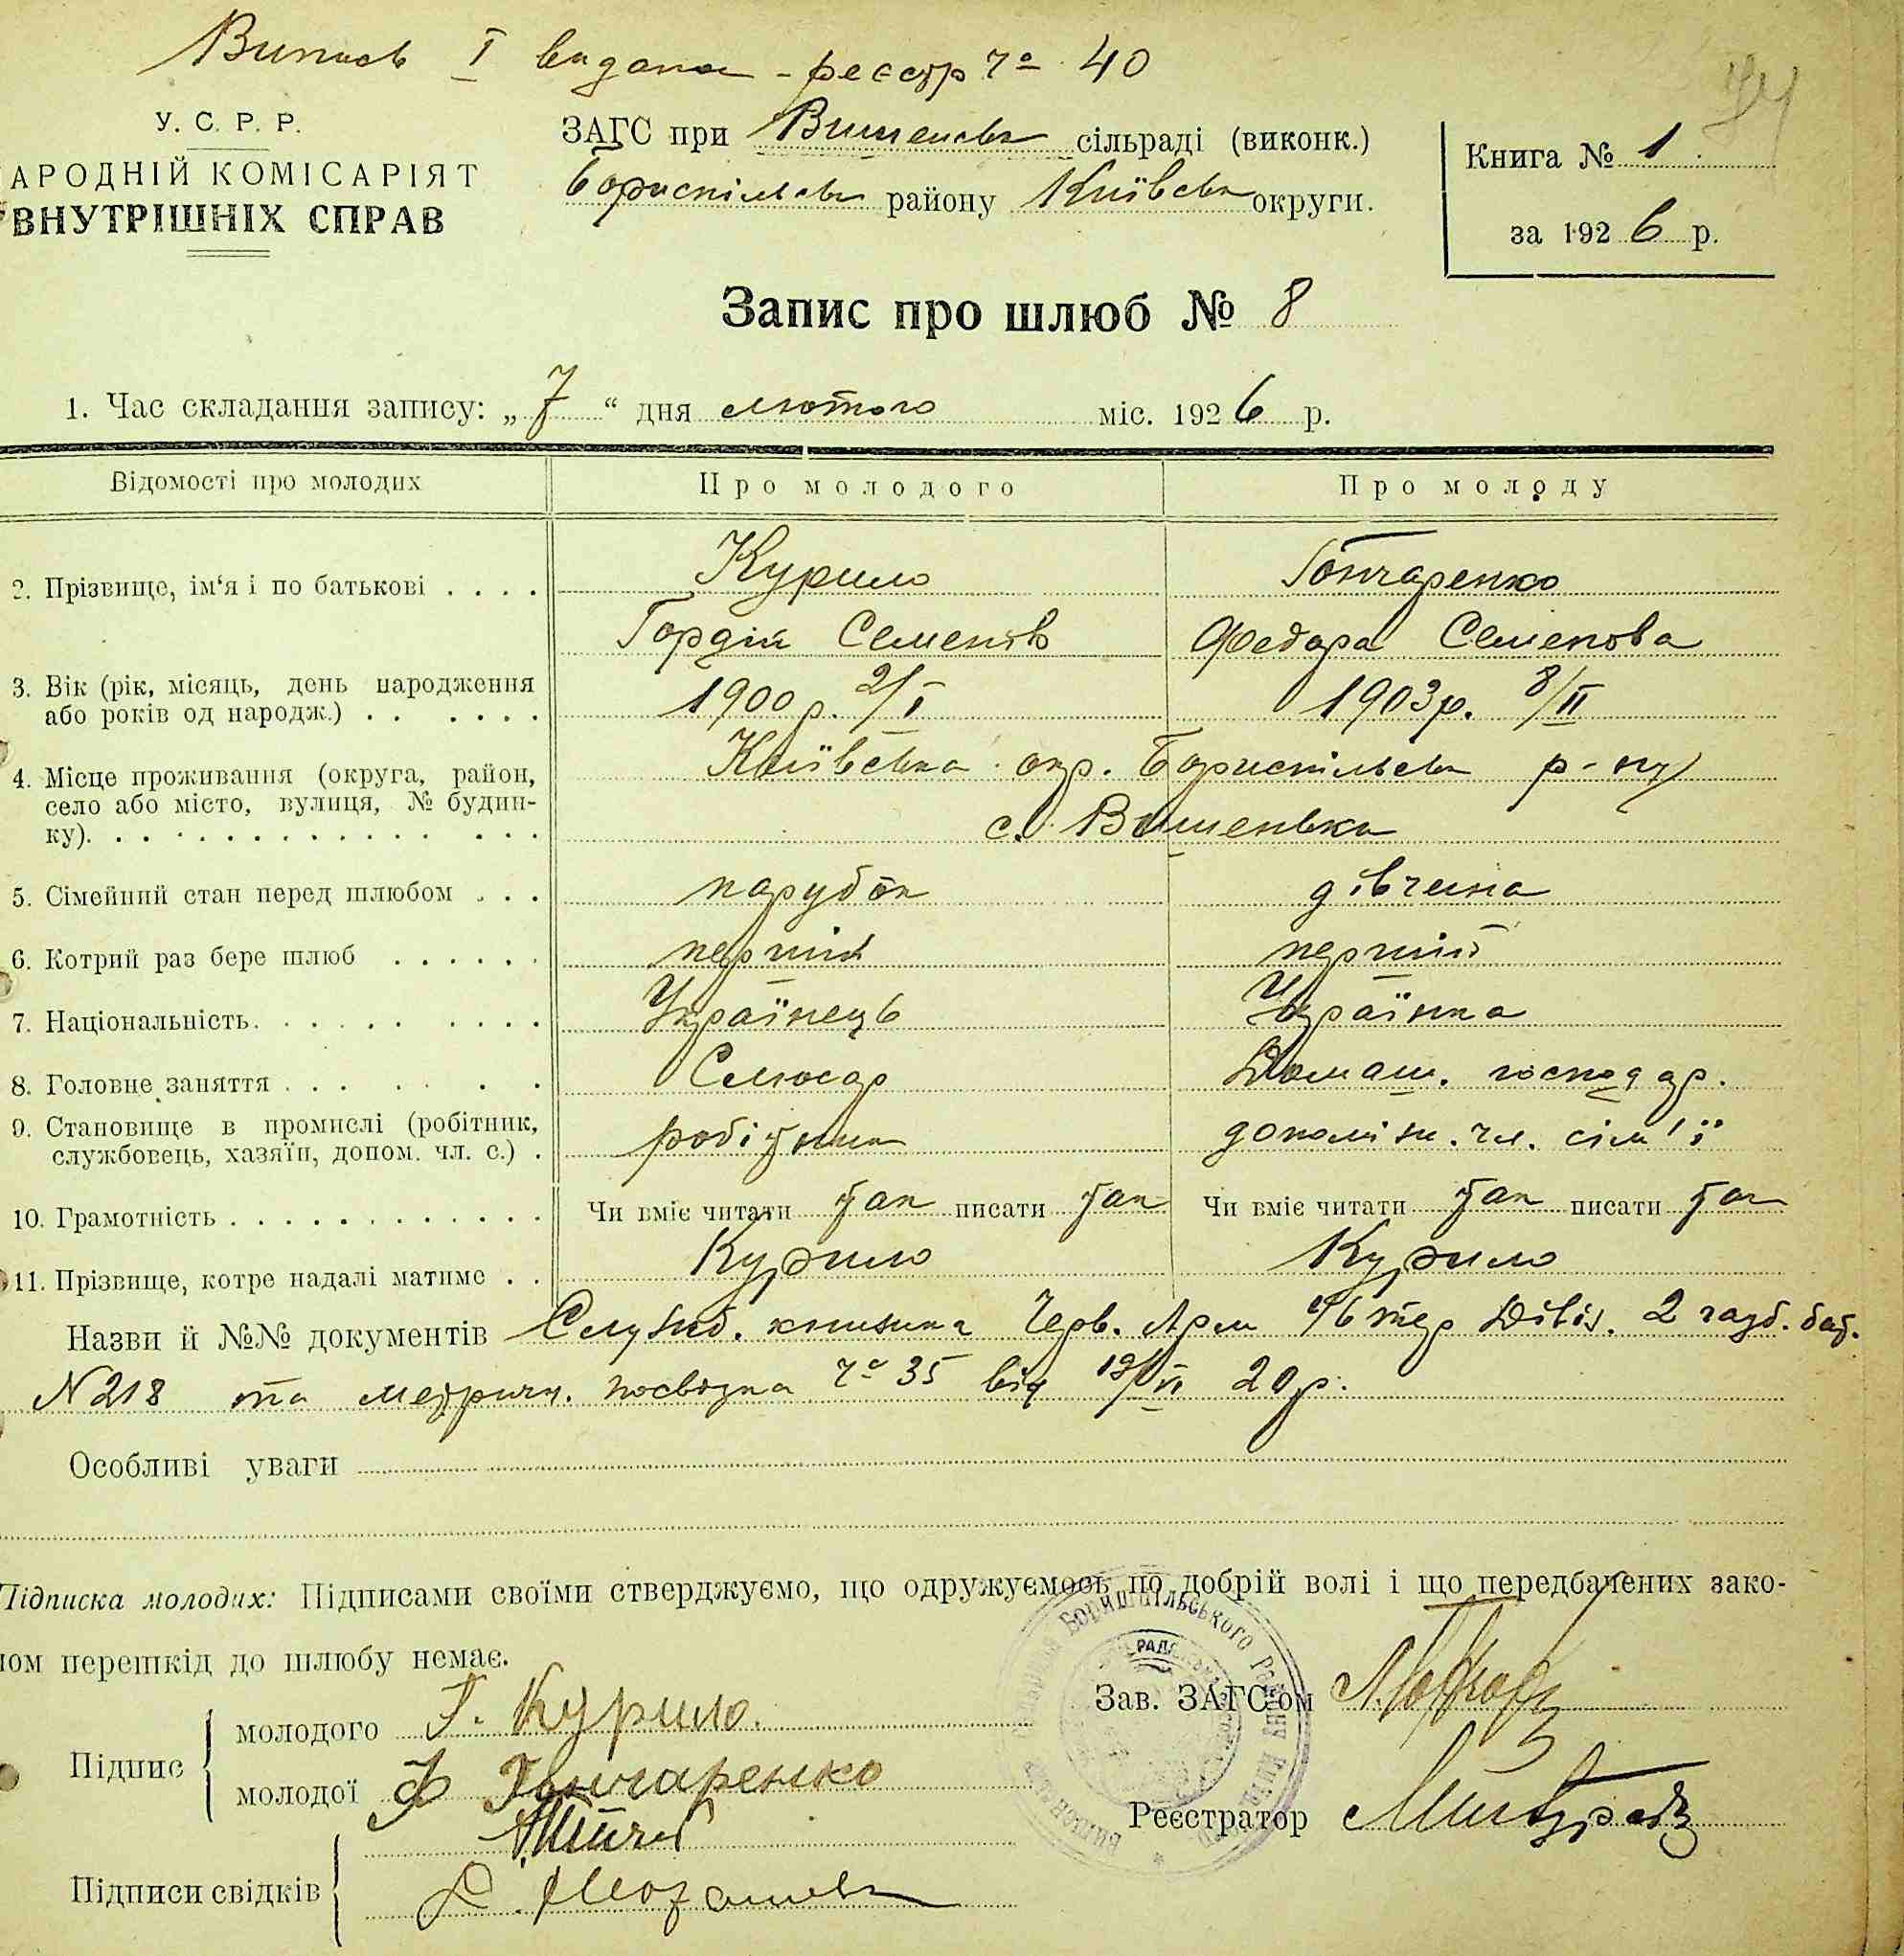 Випись I видана - реєстр ч° 40
У. С. Р. Р.
АРОДНІЙ КОМІСАРІЯТ
ВНУТРІШНІХ СПРАВ
ЗАГС при Вишенськ сільраді (виконк.)
Бориспільськ району Київськ округи.
Книга № 1
за 1926 р.
Запис про шлюб № 8
1. Час складання запису: „7“ дня лютого міс. 1926 р.
Відомості про молодих Про молодого Про молоду
2. Прізвище, ім‘я і по батькові . . . . Курило Гончаренко
Гордій Семенів Федора Семенова
3. Вік (рік, місяць, день народження
або років од народж.) . . . . . . 1900 р. 2/I 1903 р. 8/II
4. Місце проживання (округа, район,
село або місто, вулиця, № будин-
ку). Київська окр. Бориспільськ р-ну
с. Вишенька
5. Сімейний стан перед шлюбом . . . парубок дівчина
6. Котрий раз бере шлюб . . . . . . перший перший
7. Національність. Українець Українка
8. Головне заняття Слюсар Домаш. господар.
9. Становище в промислі (робітник,
службовець, хазяїн, допом. чл. с.) . робітник допоміжн. чл. сім'ї
10. Грамотність Чи вміє читати так писати так Чи вміє читати так писати так
11. Прізвище, котре надалі матиме . . Курило Курило
Назви й №№ документів Служб. книжка Черв. Арм 46 Дівіз. 2 бат.
N 218 та метрич. посвідка ч° 35 від 12/VI 20 р.
Особливі уваги
Підписка молодих: Підписами своїми стверджуємо, що одружуємось по добрій волі і що передбачених зако-
ном перешкід до шлюбу немає.
Підпис
молодого Г. Курило.
молодої Ф Гончаренко
Підписи свідків
Зав. ЗАГС'ом
Реєстратор
Бориспільського Району